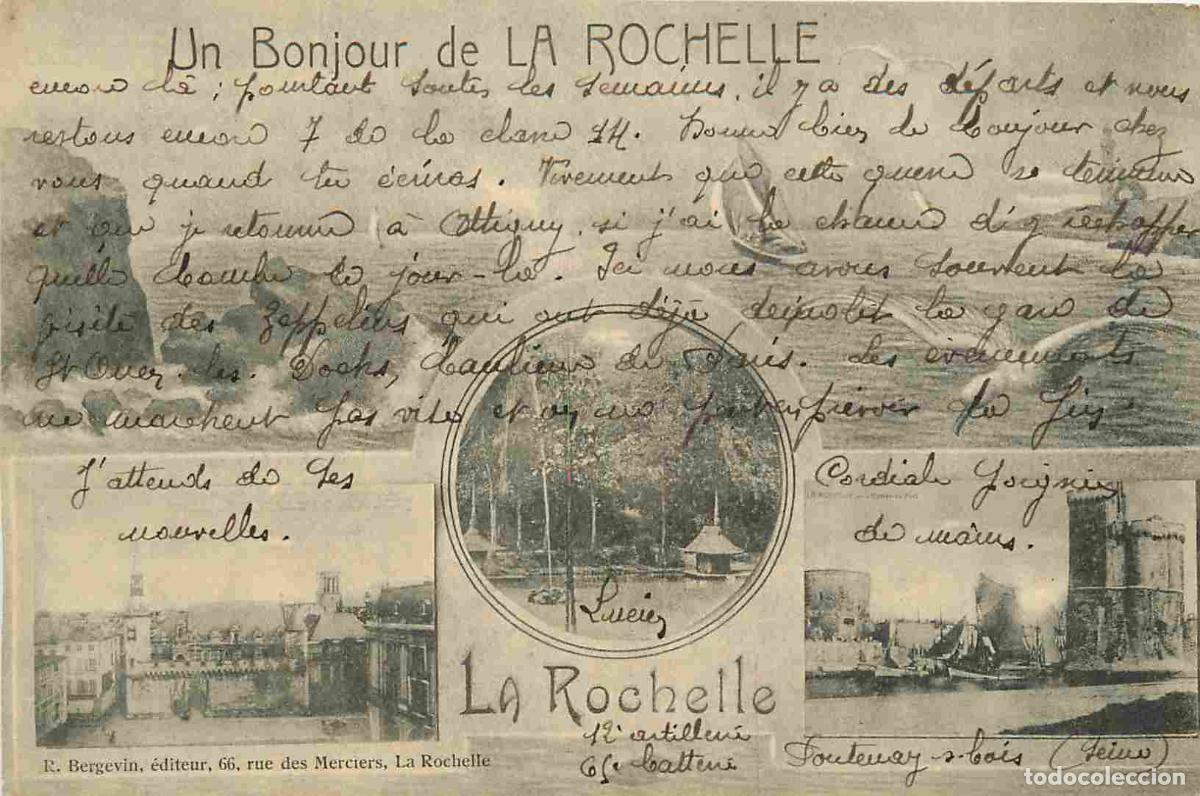 Un Bonjour de LA ROCHELLE
encore là ; pourtant toutes les semaines, il y a des départs et nous
restons encore 7 de la classe 14. Donne bien le bonjour chez
vous quand tu écriras. Vivement que cette guerre se termine
et que je retourne à Attigny, si j'ai la chance d'y réchapper
quelle bombe ce jour-là. Ici nous avons souvent la
visite des Zeppelins qui ont déjà démolit la gare de
St Ouen les Docks, banlieue de Paris. Les évènements
ne marchent pas vite et on ne peut
J'attends de tes
nouvelles.
Cordiale Poignée
de mains.
Lucien
LA ROCHELLE
12e artillerie
65e batterie
Fontenay-s-bois (Seine)
R. Bergevin, éditeur, 66, rue des Merciers, La Rochelle
todocoleccion